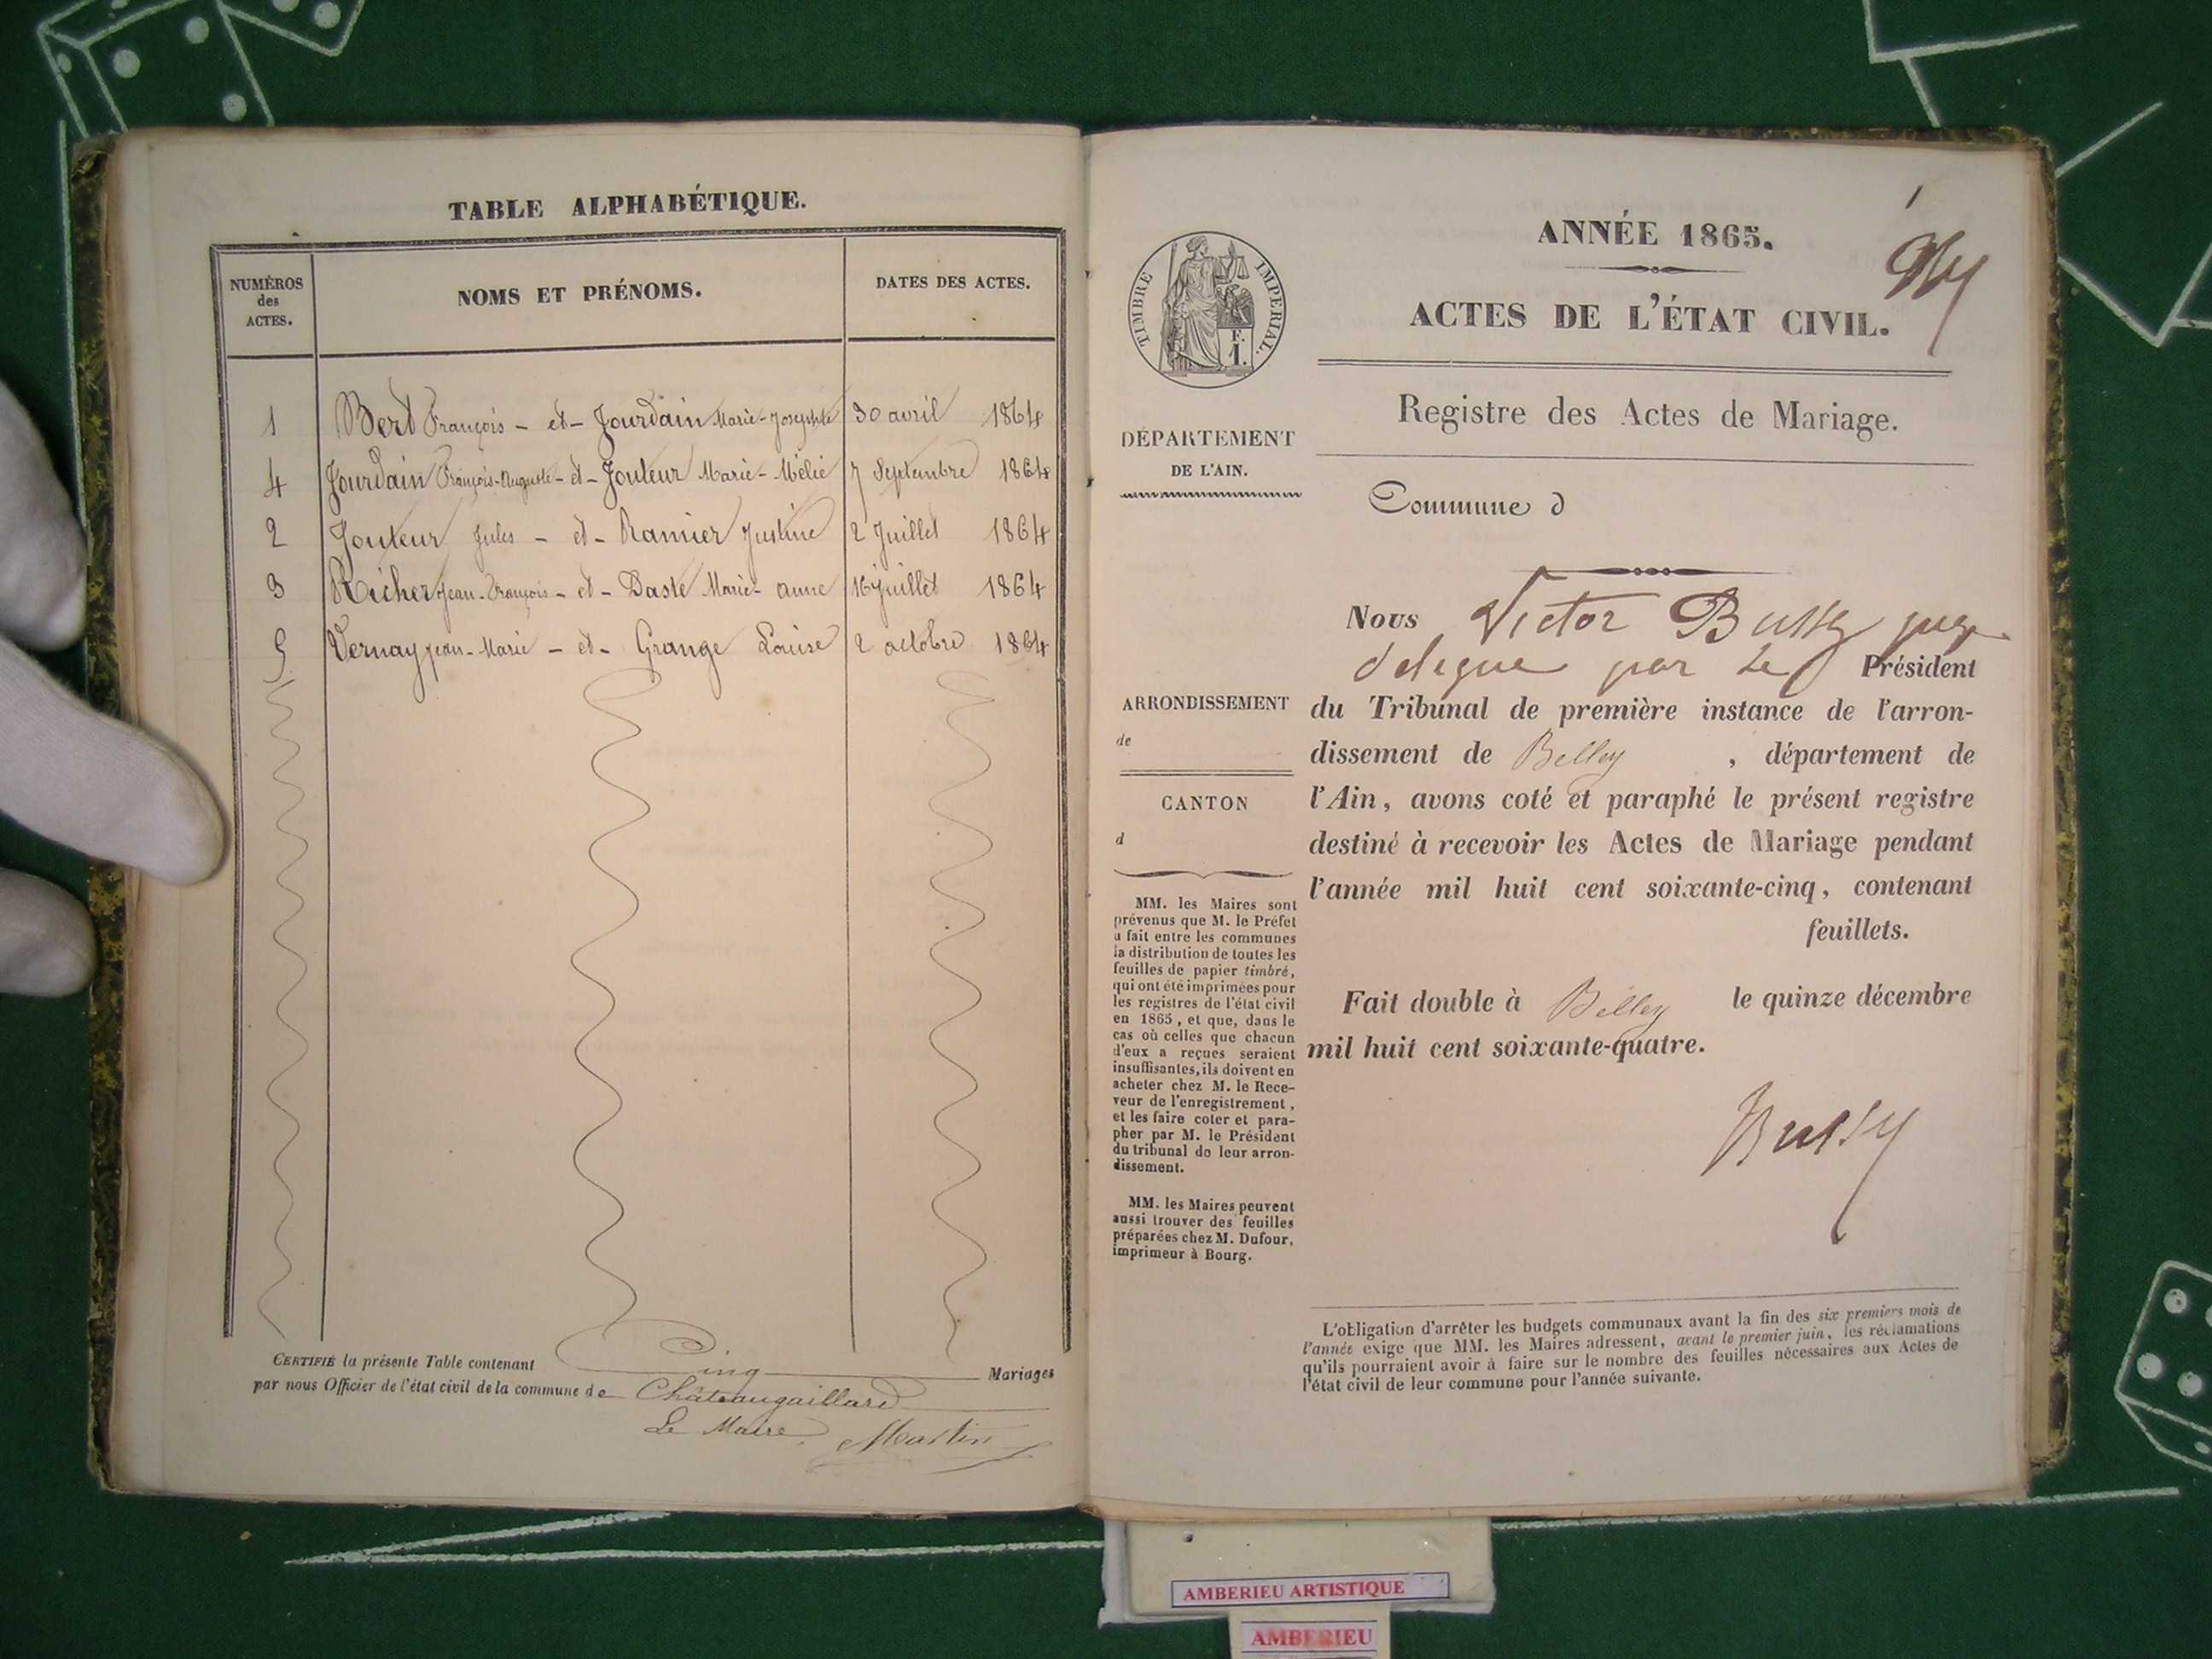 TABLE ALPHABÉTIQUE.
NUMÉROS des ACTES. NOMS ET PRÉNOMS. DATES DES ACTES.
1 Bert François - et - Jourdain Marie-Josephte 30 avril 1864
4 Jourdain François-Auguste - et - Jouteur Marie-Mélie 7 Septembre 1864
2 Jouteur Jules - et - Ramier Justine 2 Juillet 1864
3 Richer Jean-François - et - Daste Marie-anne 16 juillet 1864
5 Vernay jean-Marie - et - Grange Louise 2 octobre 1864
CERTIFIÉ la présente Table contenant Cinq Mariages
par nous Officier de l'état civil de la commune de Châteaugaillard
Le Maire, Martin
1
ANNÉE 1865.
TIMBRE IMPERIAL.
F.
1.
ACTES DE L'ÉTAT CIVIL.
Registre des Actes de Mariage.
DÉPARTEMENT
DE L'AIN.
Commune d
Nous Victor Bussy juge
delegue par le Président
ARRONDISSEMENT
de
CANTON
d
du Tribunal de première instance de l'arron-
dissement de Belley , département de
l'Ain, avons coté et paraphé le présent registre
destiné à recevoir les Actes de Mariage pendant
l'année mil huit cent soixante-cinq, contenant
feuillets.
Fait double à Belley le quinze décembre
mil huit cent soixante-quatre.
Bussy
MM. les Maires sont
prévenus que M. le Préfet
a fait entre les communes
la distribution de toutes les
feuilles de papier timbré,
qui ont été imprimées pour
les registres de l'état civil
en 1865, et que, dans le
cas où celles que chacun
d'eux a reçues seraient
insuffisantes, ils doivent en
acheter chez M. le Rece-
veur de l'enregistrement,
et les faire coter et para-
pher par M. le Président
du tribunal de leur arron-
dissement.
MM. les Maires peuvent
aussi trouver des feuilles
préparées chez M. Dufour,
imprimeur à Bourg.
L'obligation d'arrêter les budgets communaux avant la fin des six premiers mois de
l'année exige que MM. les Maires adressent, avant le premier juin, les réclamations
qu'ils pourraient avoir à faire sur le nombre des feuilles nécessaires aux Actes de
l'état civil de leur commune pour l'année suivante.
AMBERIEU ARTISTIQUE
AMBERIEU